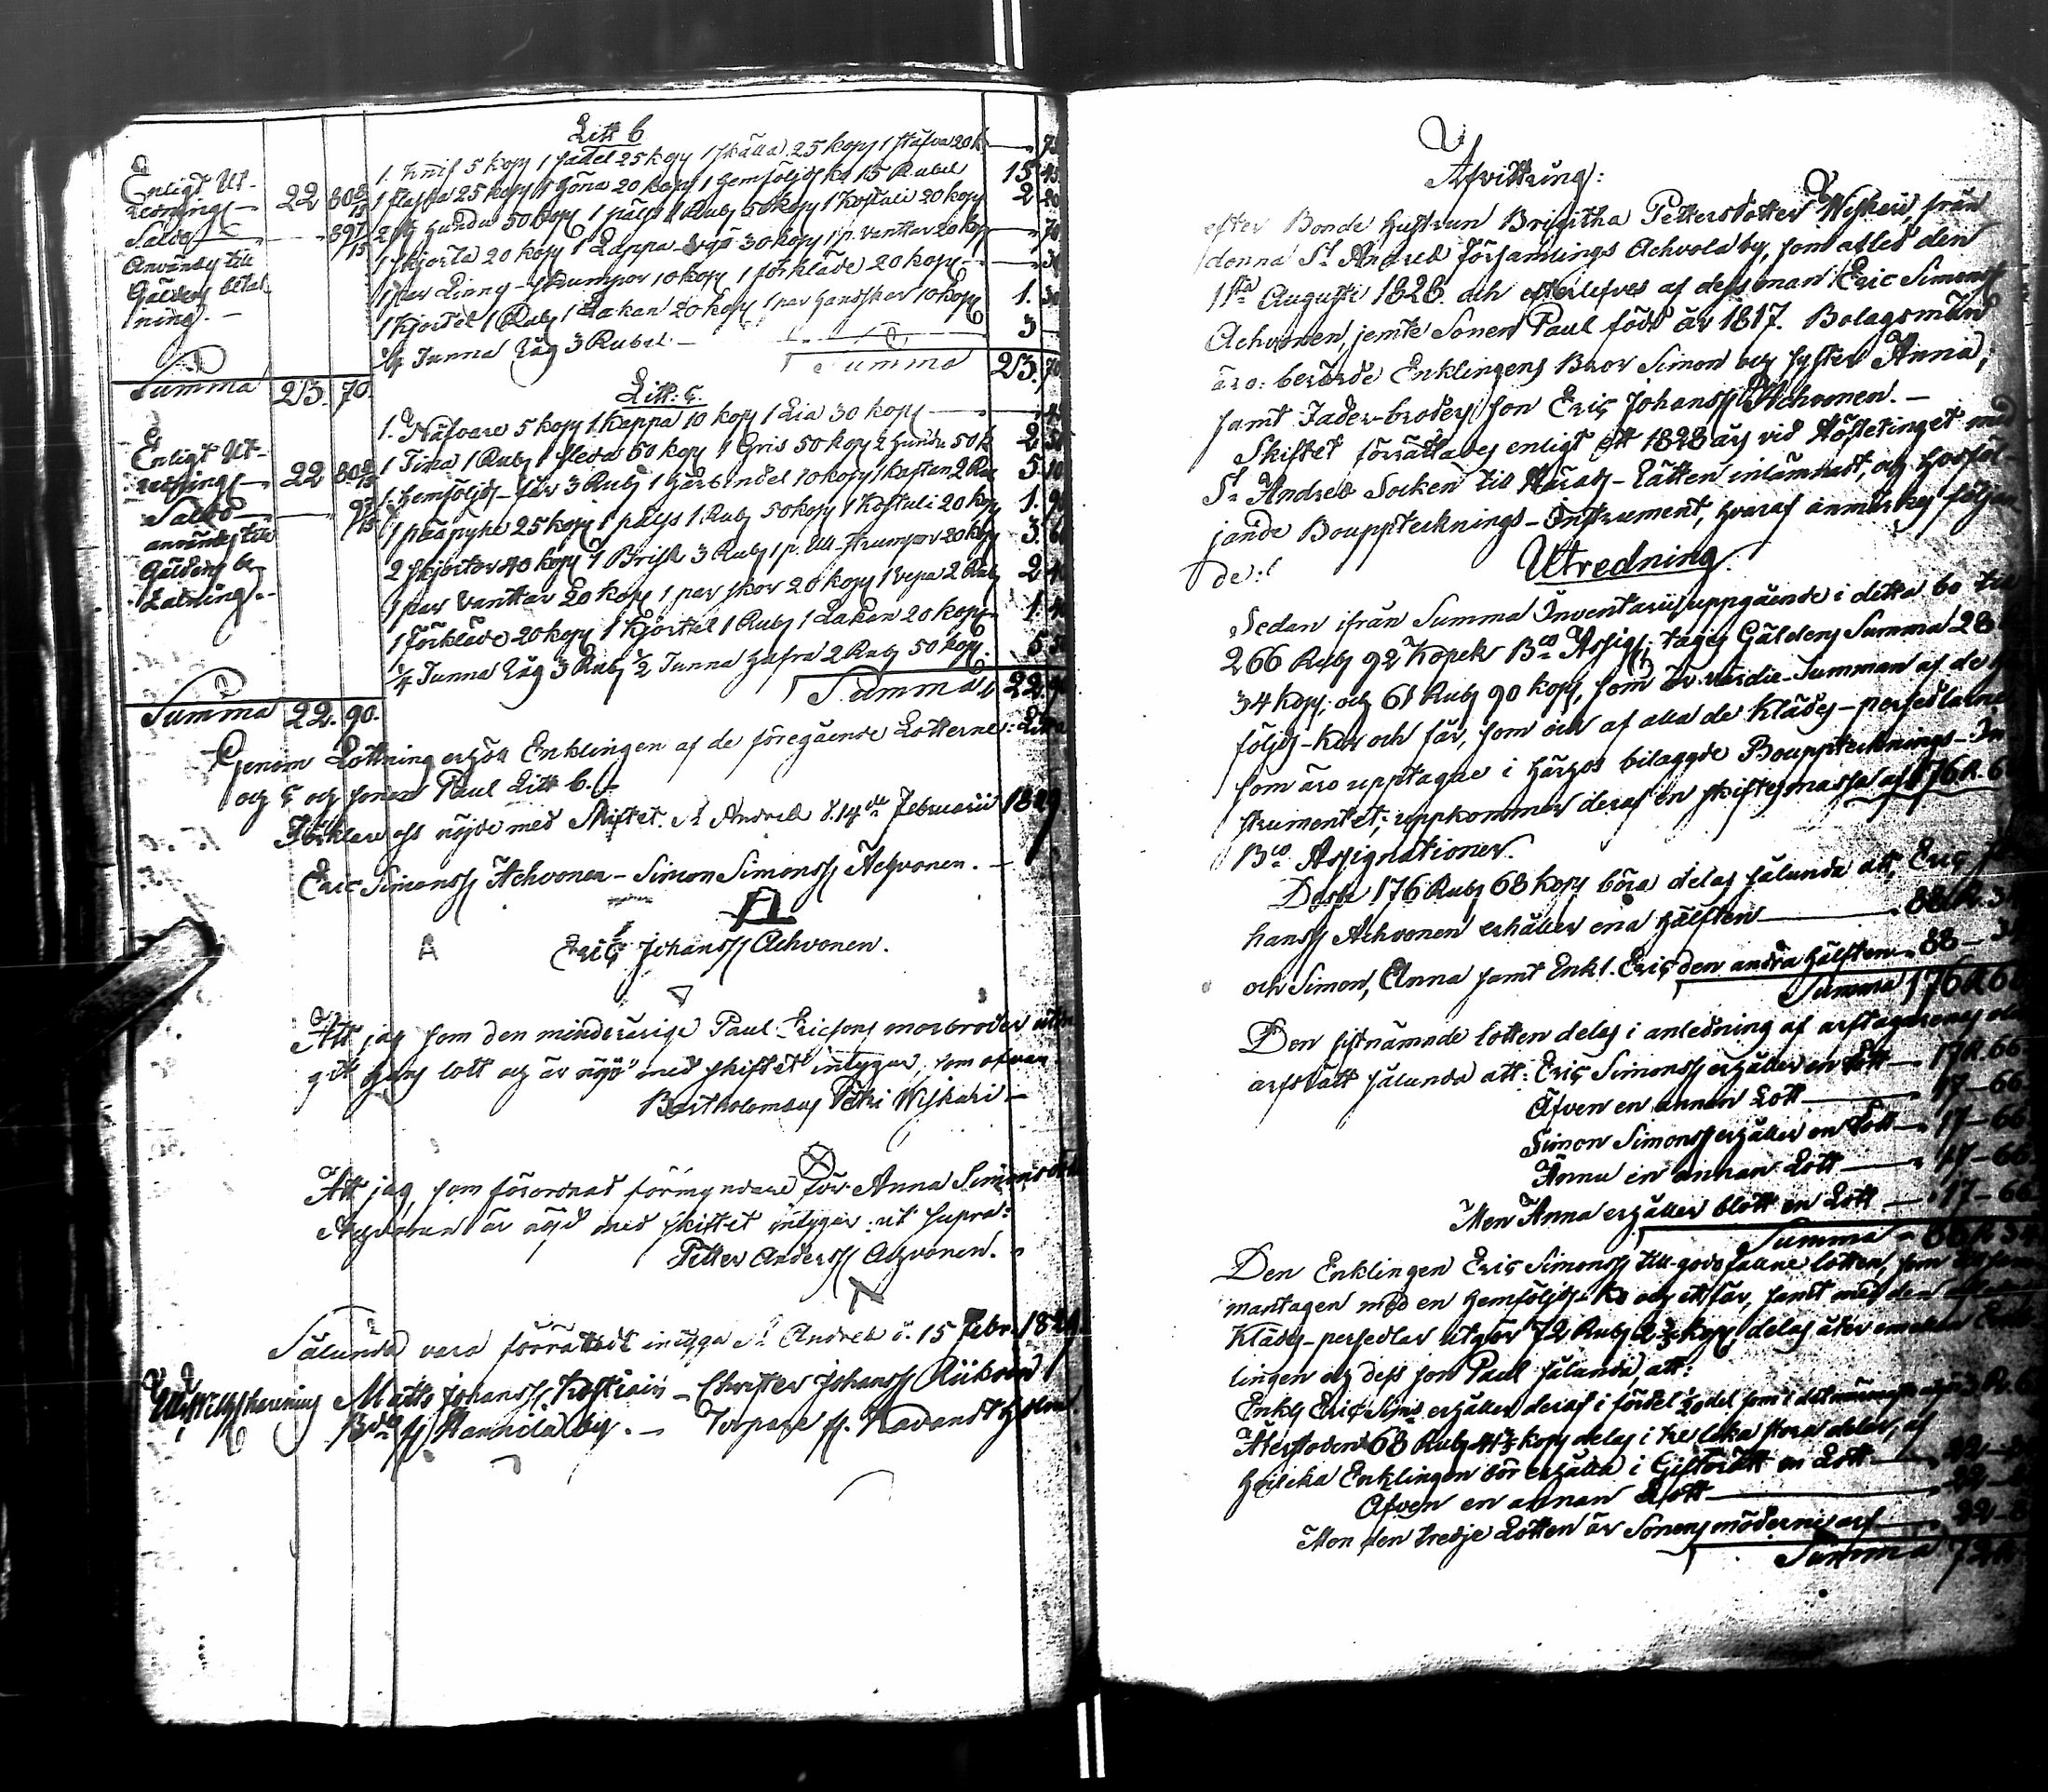 Litt b
1. Knif 5 kop 1 sadel 25 kop 1 skälla 25 kop 1 stäfva 20 k — 75
1 flaska 25 kop 1 Höna 20 kop 1 Hemföljds ko 15 Rubel 15 45
2 st. hundar 50 kop 1 päls 1 Rub 50 kop 1 Kostuli 20 kop 2 20
1 skjorta 20 kop 1 Lappa 30 kop 1 p. vanttar 20 kop — 70
1 par Linng-strumpor 10 kop 1 förkläde 20 kop — 30
1 Kjortel 1 Rub 1 Lakan 20 kop 1 par handskar 10 kop 1. 30
1/4 Tunna Råg 3 Rubel. — 3 —
Summa 23. 70
Enligt Ut-
redning — 22 802/15
Saldo — 897/15
Användes till
Gäldens betal-
ning. —
Summa 23. 70.
Litt: c.
1. Näfvare 5 kop 1 Kappa 10 kop 1 Lia 30 kop — 45
1 Tina 1 Rub 1 sleda 50 kop 1 Gris 50 kop 2 hundar 50 k 2 50
1. Hemföljds-får 3 Rub 1 Gårbindel 10 kop 1 kaftan 2 Rub 5 10
1 päapyhe 25 kop 1 päls 1 Rub 50 kop 1 Kostuli 20 kop 1. 95
2 skjortor 40 kop 1 Brisk 3 Rub 1 p. Ull-strumpor 20 kop 3. 60
1 par Vanttar 20 kop 1 par skor 20 kop 1 vepa 2 Rub 2 40
1 förkläde 20 kop 1 Kjortel 1 Rub 1 Lakan 20 kop 1. 40
1/4 Tunna Råg 3 Rub 1/2 Tunna Hafra 2 Rub 50 kop. 5 50
Summa 22. 90
Enligt Ut-
redning — 22 802/15
Saldo — 97/15
användes till
Gäldens be-
talning. —
Summa 22. 90.
Genom Lottning erhöll Enklingen af de föregående Lotterne: Litt a
och c och sonen Paul Litt b. —
Förklare oss nöjde med Skiftet. St Andreæ d. 14de Februarii 1829
Eric Simonss Achvonen — Simon Simonss Achvonen. —
A Eric Johanss Achvonen.
Att jag som den minderårige Paul Ericsons morbroder utta-
git hans lott och är nöjd med skiftet intygar, som ofvan.
Bartholomæus Petri Wiskari —
Att jag, som förordnad förmyndare för Anna Simonsdotter
Achvonen är nöjd med skiftet intygar: ut supra:
Petter Anderss Achvonen. —
Sålunda vara förrättadt intyga St Andreæ d. 15 Febr. 1829.
Matts Johanss Kostiain — Christer Johanss Riikoin
fr Kannila by. — Torpare fr. Kavandtholm.
Afvittring:
efter Bonde Hustrun Brigitha Pettersdotter Wiskari, från
denna St Andreæ Församlings Achvola by, som afled den
1sta Augusti 1828. och efterlefves af dess man Eric Simonss
Achvonen, jemte Sonen Paul född år 1817. Bolagsmän
äro: berörde Enklingens Bror Simon och syster Anna,
samt Fader-broders son Eric Johanss Achvonen. —
Skiftet förrättades enligt ett 1828 års vid Hösttinget med
St Andreæ Socken till Härads-Rätten inlämnadt, och Hosföl-
jande Bouppteknings-Instrument, hvaraf anmärkes följan-
de:
Utredning.
Sedan ifrån Summa Inventarii uppgående i detta bo till
266 Rub 92 Kopek Bco Assig: tages Gäldens Summa 28
34 kop; och 61 Rub 90 kop, som är värdie-Summan af de
följds-kor och får, som och af alla de Klädes-persedlarne
som äro upptagne i härhos bilaggde Bouppteknings-In-
strumentet; uppkommer deraf en skiftesmassa af 176 R. 6
Bco Assignationer.
Dessa 176 Rub 68 kop böra delas sålunda att, Eric Jo-
hanss Achvonen erhåller ena Hälften — 88 R. 34
och Simon, Anna samt Enkl. Eric den andra Hälften — 88 — 34
Summa 176 R. 68
Den sistnämnde lotten delas i anledning af arftagarenes
arfsrätt sålunda att: Eric Simonss erhåller en Lott — 17 R. 66
Äfven en annan Lott — 17 — 66
Simon Simonss erhåller en Lott — 17 — 66
Ännu en annan Lott — 17 — 66.
Men Anna erhåller blott en Lott — 17 — 66
Summa — 88 R. 34
Den Enklingen Eric Simonss till-godo fallne lotten, som
mantagen med en hemföljds-ko och ett får, samt med den
Klädes-persedlar utgör 72 Rub kop delas åter emellan Enk-
lingen och dess son Paul sålunda, att:
Enkl Eric Sims erhåller deraf i fördel 1/20 del
Återstoden 68 Rub kop delas i tre lika stora delar, af
hvilka Enklingen bör erhålla i Giftorätt en Lott — 22 —
Äfven en annan Lott — 22 —
Men den tredje Lotten är Sonens möderne arf — 22 —
Summa 72 R.